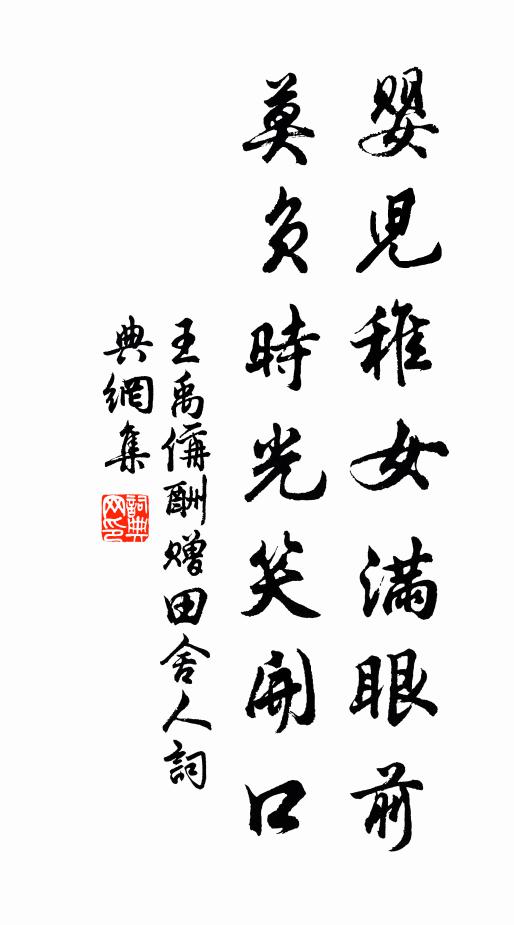 嬰兒稚女滿眼前
莫負時光笑開口
王禹偁酬贈田舍人詞
典網集
詞典网印